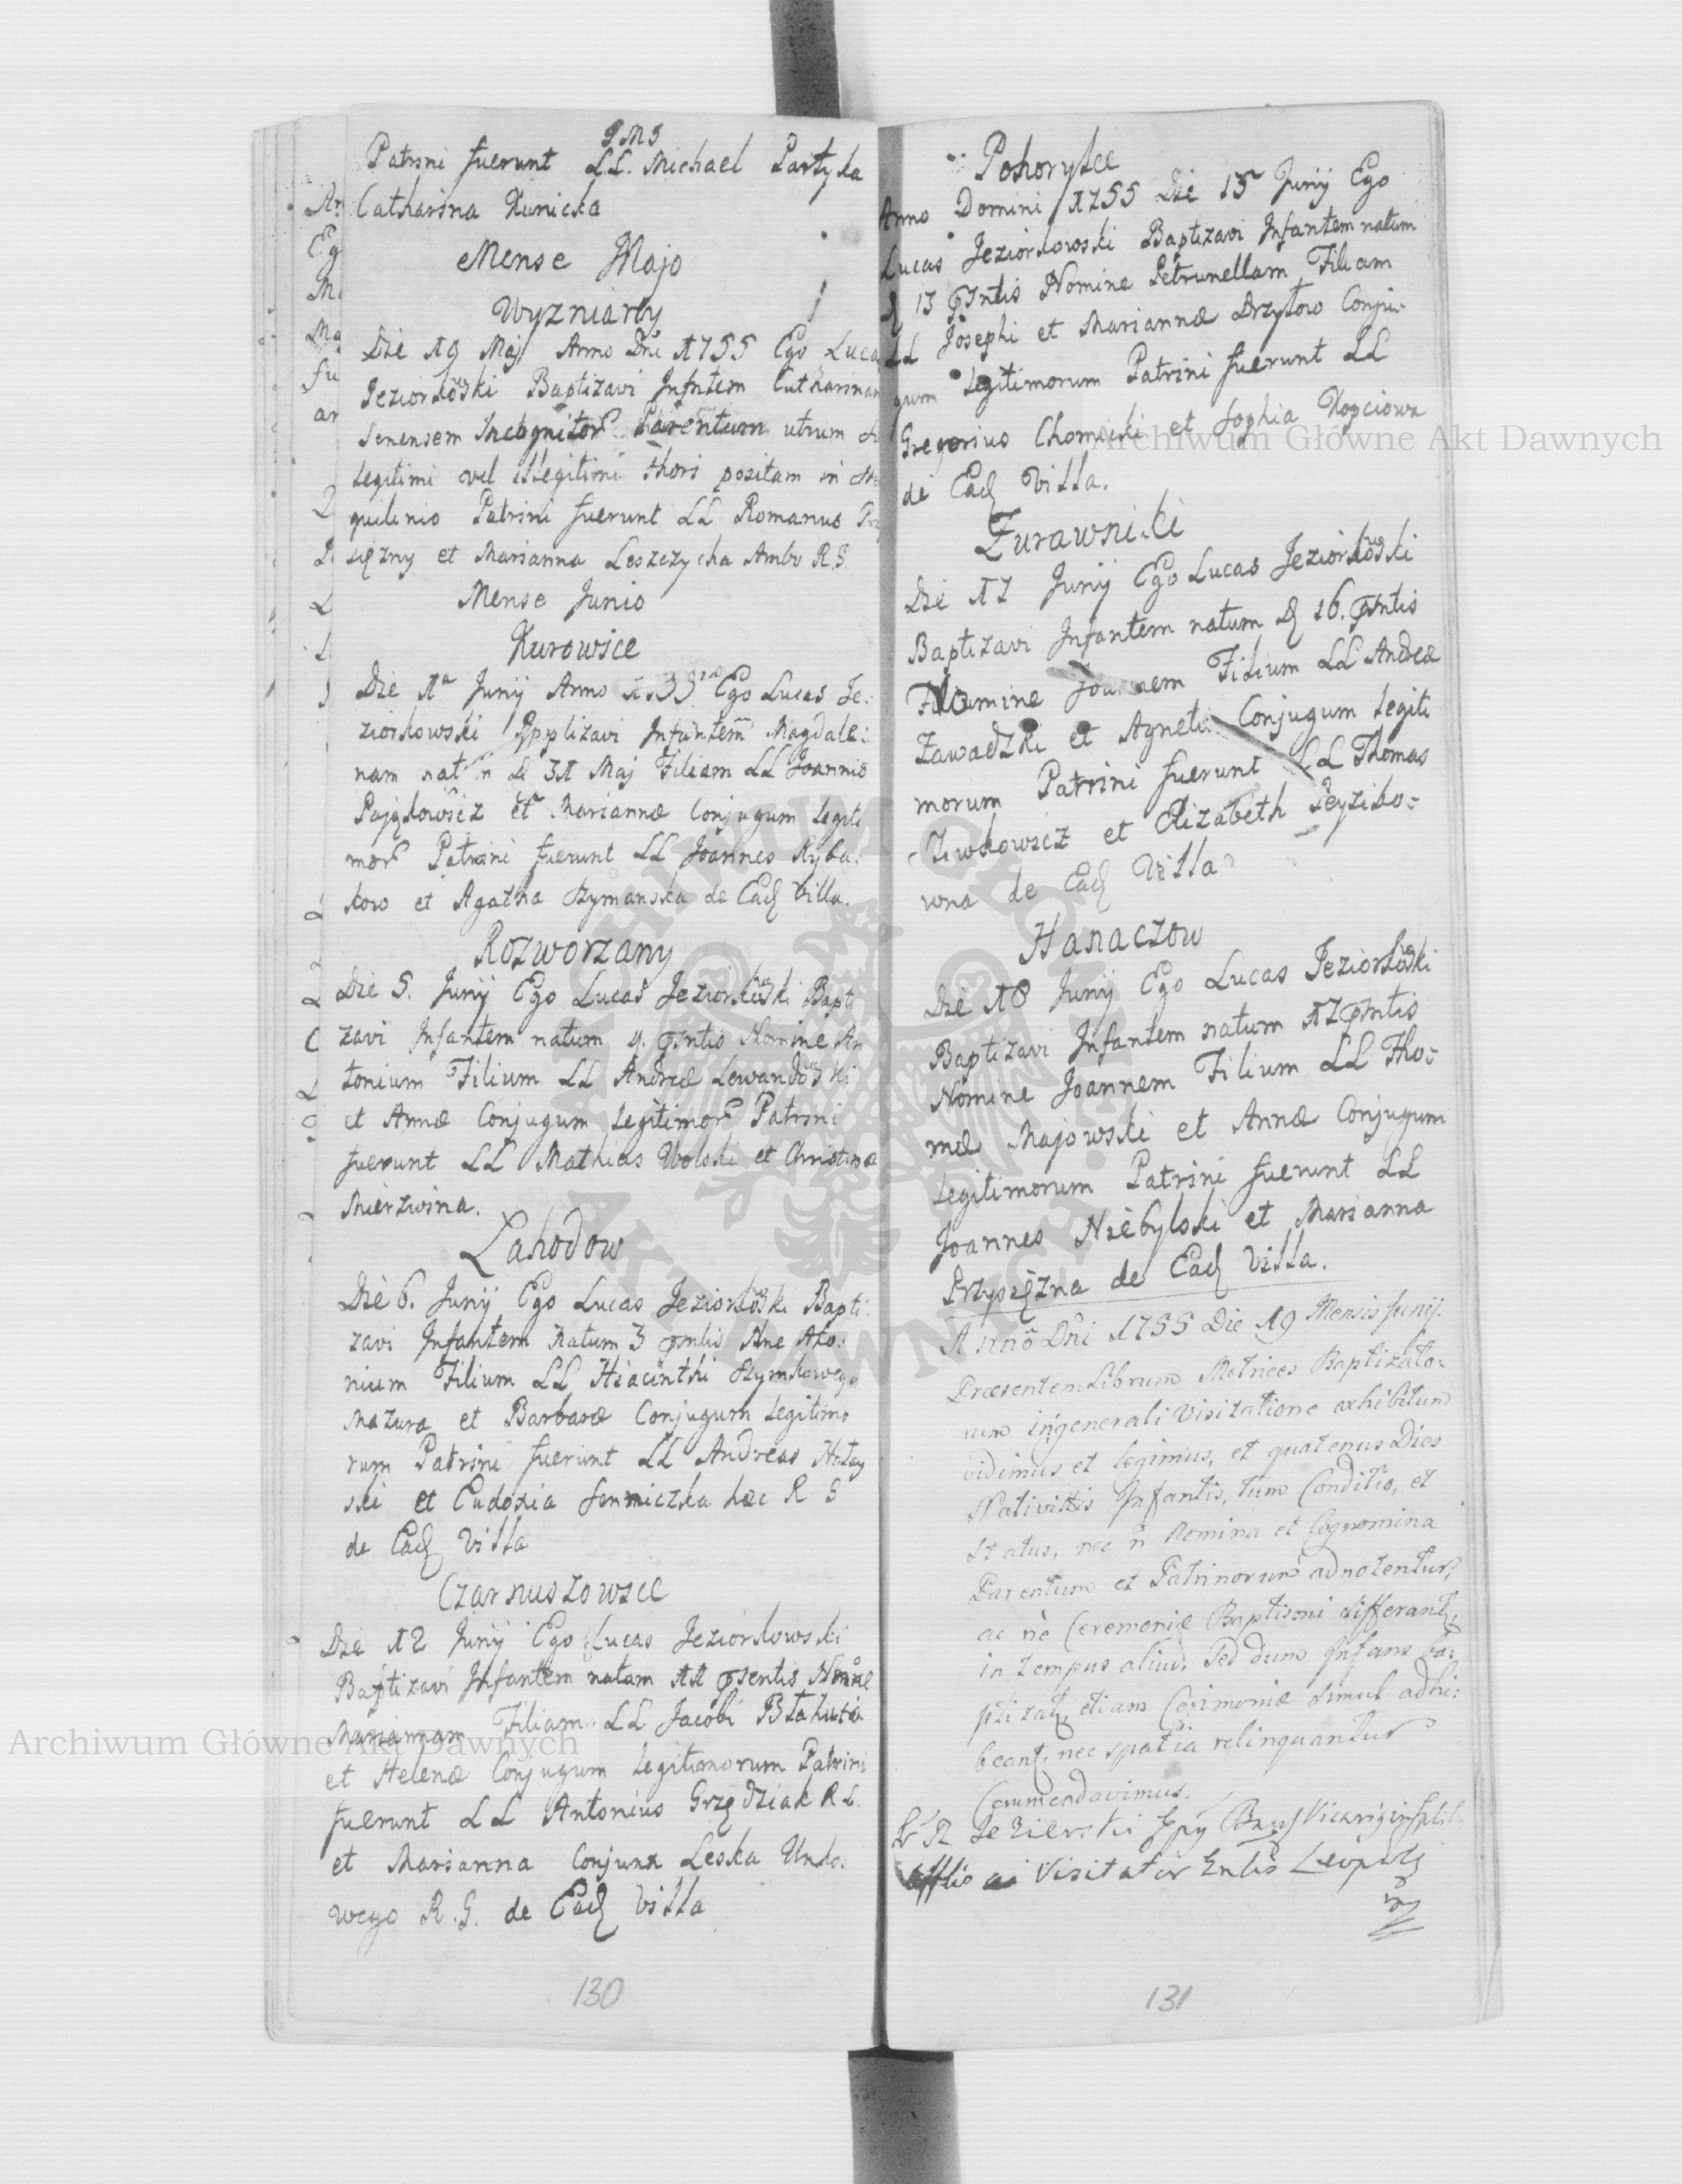 GMS
Patrini fuerunt LL. Michael Partyka
Catharina Kunicka
Mense Majo
Wyzniany
Die 19 Maj Anno Dni 1755 Ego Luca
Jeziorkowski Baptizavi Infntem Catharinam
Senensem Incognitor Parentum utrum
Legitimi vel Illegitimi thori positam in
quilinio Patrini fuerunt LL Romanus
siężny et Marianna Leszczycha Ambo R.G.
Mense Junio
Kurowice
Die 1a Junij Anno 1755to Ego Lucas Je:
ziorkowski Bapptizavi Infantem Magdale:
nam natam D 31 Maj Filiam LL Joannis
Pajękowicz et Mariannæ Conjugum Legiti
mor Patrini fuerunt LL Joannes Ryba:
kow et Agatha Szymanska de Ead Villa.
Rozworzany
Die 5. Junij Ego Lucas Jeziorkowski Bapti
zavi Infantem natum 4. psntis Nomine An
tonium Filium LL Andreæ Lewandowski
et Annæ Conjugum Legitimor Patrini
fuerunt LL Mathias Wolski et Christina
Mierzwina.
Lahodow
Die 6. Junij Ego Lucas Jeziorkowski Bapti:
zavi Infantem Natum 3 psntis Nne Ato:
nium Filium LL Hiacinthi Szymkowego
Mazura et Barbaræ Conjugum Legitimo
rum Patrini fuerunt LL Andreas
ski et Eudoxia Senniczka hæc R G
de Ead Villa
Czarnuszowice
Die 12 Junij Ego Lucas Jeziorkowski
Baptizavi Infantem natam 11 psentis Nomine
Mariannam Filiam LL Jacobi Blahuta
et Helenæ Conjugum Legitimorum Patrini
fuerunt LL Antonius Grzędziak R L.
et Marianna Conjunx Leska
wego R.G. de Ead Villa
130
Pohorylce
Anno Domini 1755 Die 15 Junij Ego
Lucas Jeziorkowski Baptizavi Infantem natum
D 13 psntis Nomine Petrunellam Filiam
LL Josephi et Mariannæ Drzytow Conju-
gum Legitimorum Patrini fuerunt LL
Gregorius Chomicki et Sophia Kopciowa
de Ead Villa.
Żurawniki
Die 17 Junij Ego Lucas Jeziorkowski
Baptizavi Infantem natum D 16. psntis
Nomine Joannem Filium LL Andreæ
Zawadzki et Agnetis Conjugum Legiti
morum Patrini fuerunt LL Thomas
Jwkowicz et Elizabeth Peyziko=
wna de Ead Villa
Hanaczow
Die 18 Junij Ego Lucas Jeziorkowski
Baptizavi Infantem natum 17 psntis
Nomine Joannem Filium LL Tho=
mæ Majowski et Annæ Conjugum
Legitimorum Patrini fuerunt LL
Joannes Niebylski et Marianna
Przysiężna de Ead Villa.
Anno Dni 1755 Die 19 Mensis Junij.
Præsentem Librum Metrices Baptizato=
rum in generali Visitatione exhibitum
vidimus et legimus, et quatenus Dies
Nativittis Infantis, tum Conditio, et
Status, nec n Nomina et Cognomina
Parentum et Patrinorum adnotentur,
ac ne Ceremoniæ Baptismi differant,
in tempus aliud. Sed dum Infans ba:
ptizat, etiam Cerimoniæ simul adhi:
beant, nec spatia relinquantur
Commendavimus.
Jezierski Epp
Offlis ac Visitator Gnlis Leopol
131
Archiwum Główne Akt Dawnych
Archiwum Główne Akt Dawnych
ARCHIWUM GŁÓWNE AKT DAWNYCH